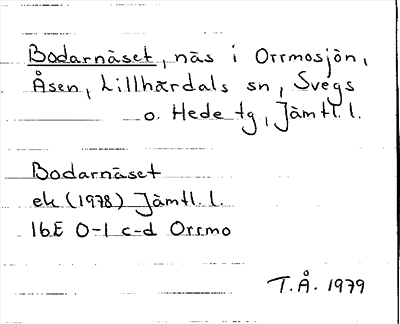 Bodarnäset, näs i Orrmosjön,
Åsen, Lillhärdals sn, Svegs
o. Hede tg, Jämtl. l.
Bodarnäset
ek (1978) Jämtl. l.
16E 0-1 c-d Orrmo
T.Å. 1979